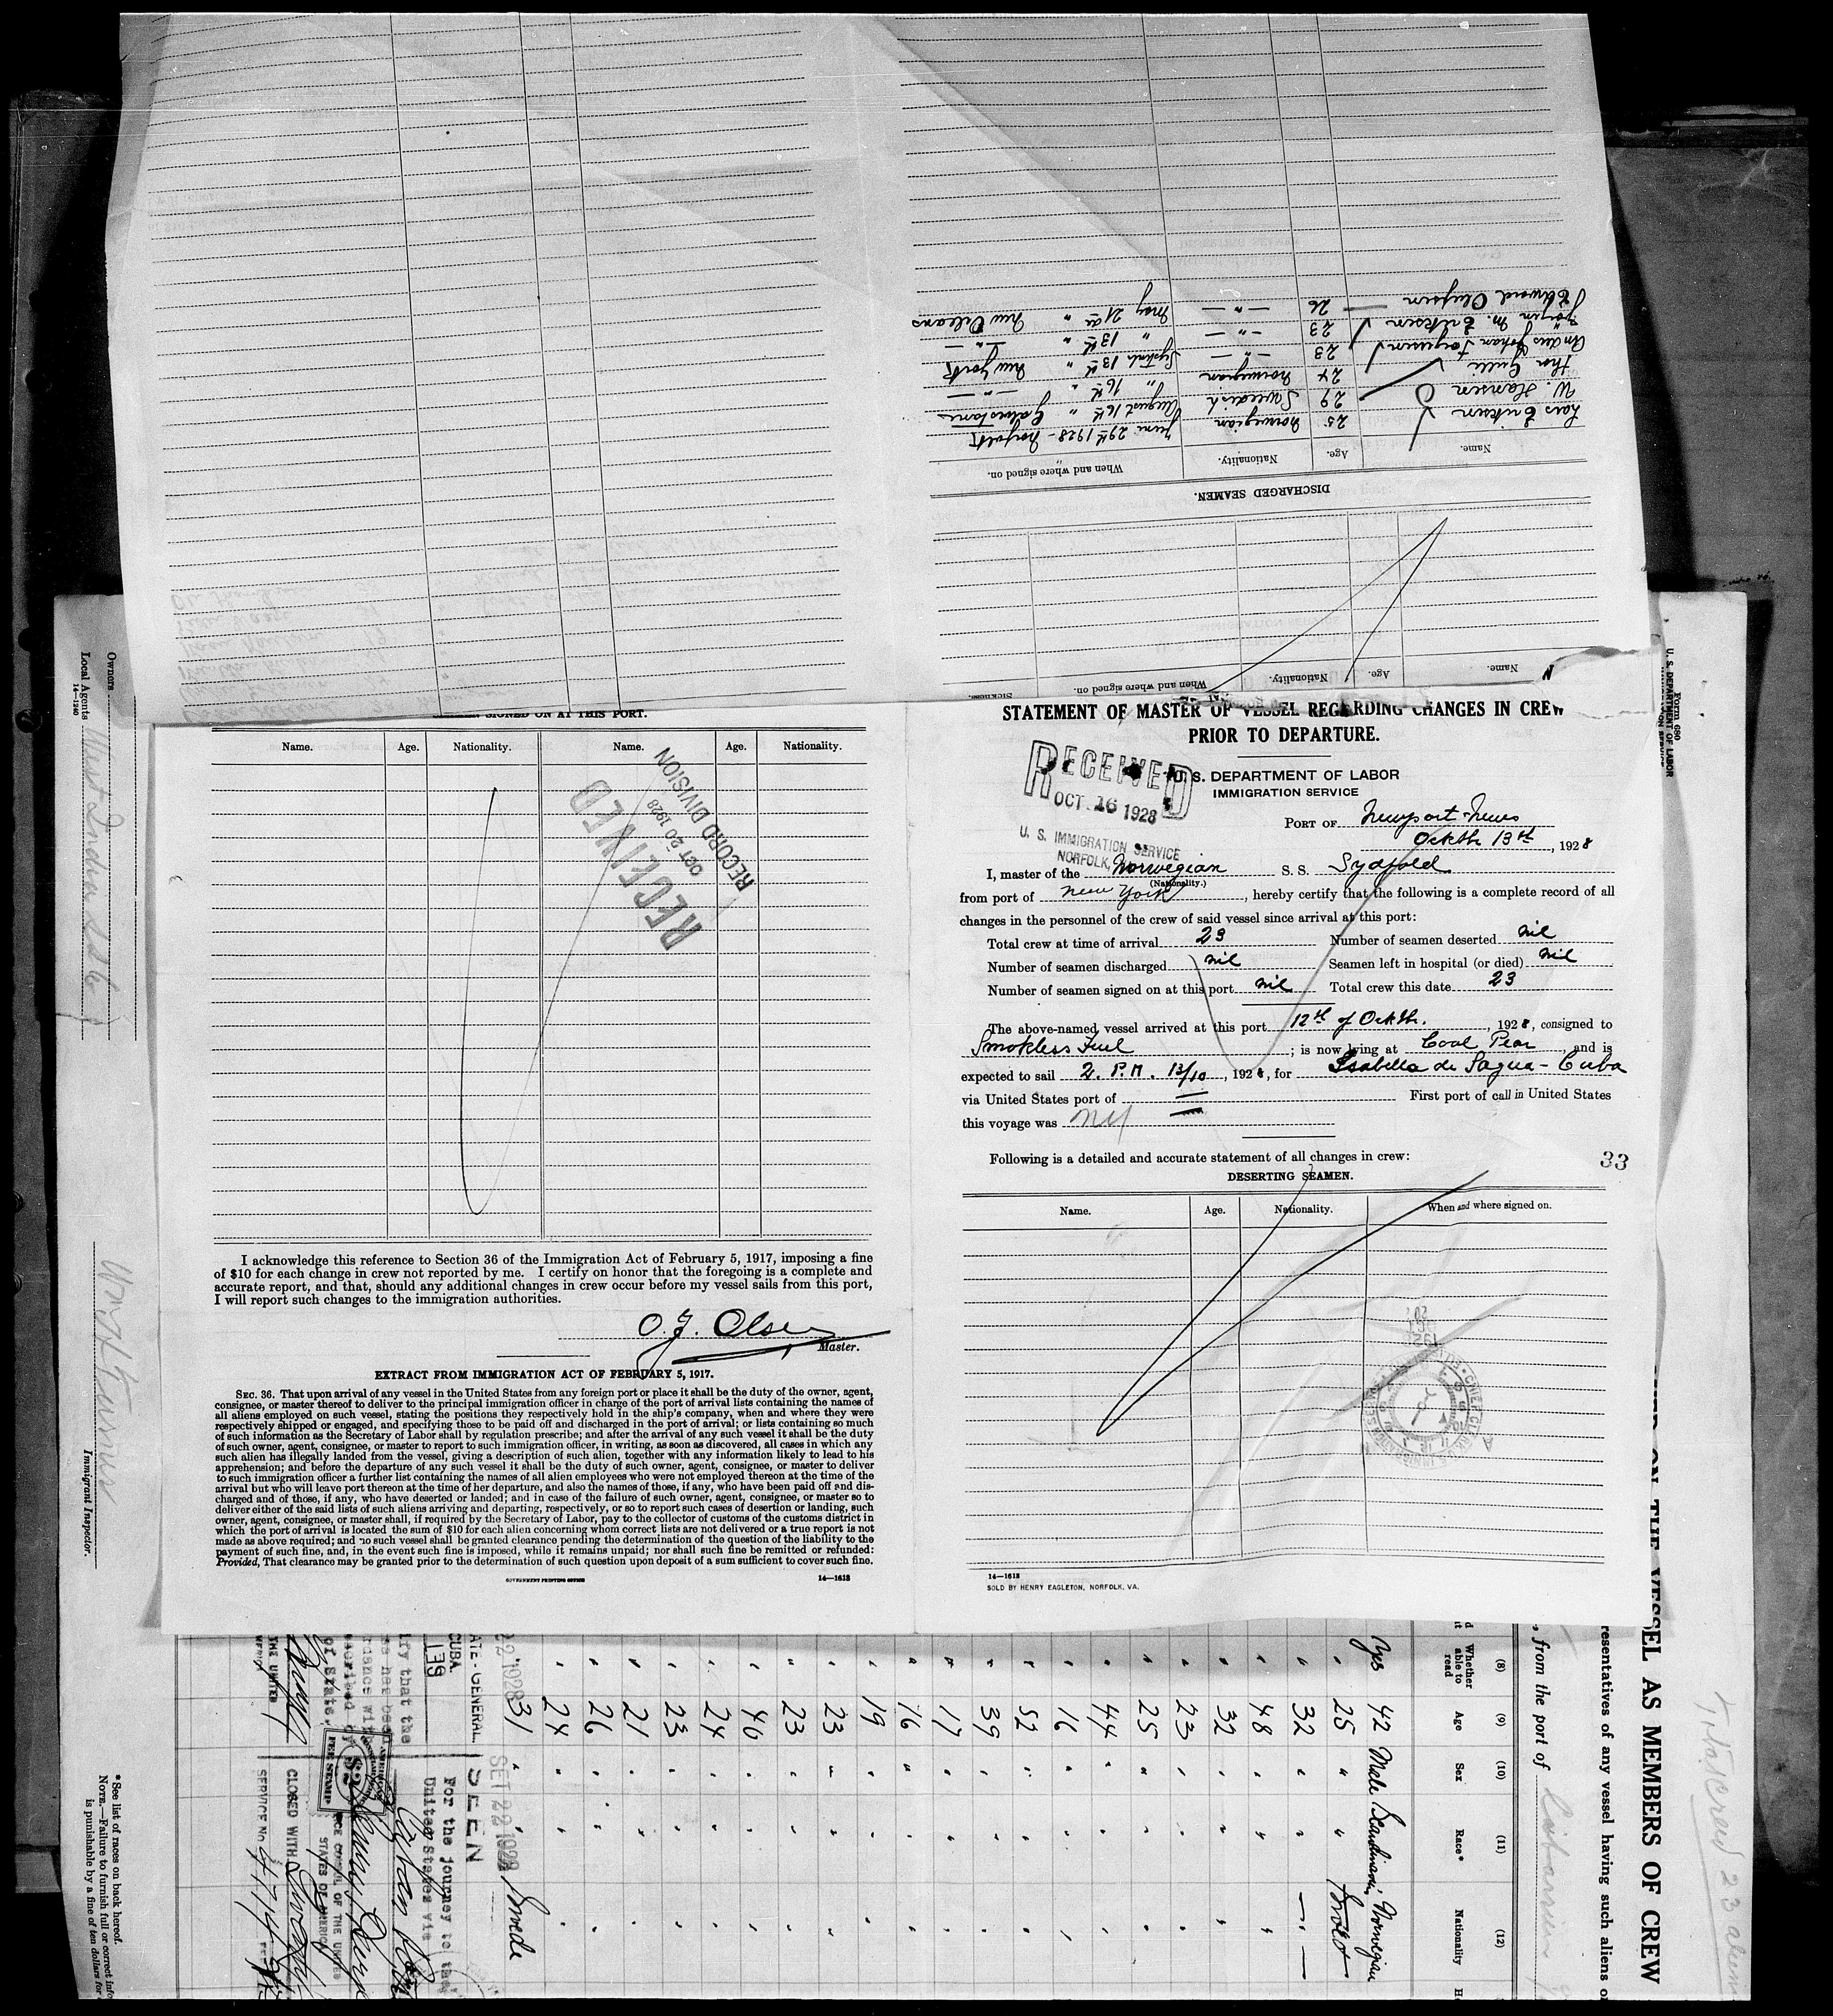 Sickness.
Name.
Age.
Nationality.
When and where signed on.
DISCHARGED SEAMEN.
Name.
Age.
Nationality.
When and where signed on.
Lars Eriksen 25 Norwegian June 29th 1928 - Norfolk
W. Hansen 29 Swedish August 16th " Galvestone
Thor 24 Norwegian " 16th " — " —
Andus Johan Torgersen 23 — " — Septemb 13th " New York
Jörgen M. Eriksen 23 — " — " 13th " — " —
Edward Olufsen 26 — " — May 21 " New Orleans
SIGNED ON AT THIS PORT.
Name. Age. Nationality. Name. Age. Nationality.
RECEIVED
OCT 20 1928
RECORD DIVISION
I acknowledge this reference to Section 36 of the Immigration Act of February 5, 1917, imposing a fine
of $10 for each change in crew not reported by me. I certify on honor that the foregoing is a complete and
accurate report, and that, should any additional changes in crew occur before my vessel sails from this port,
I will report such changes to the immigration authorities.
O. J. Olsen
Master.
EXTRACT FROM IMMIGRATION ACT OF FEBRUARY 5, 1917.
SEC. 36. That upon arrival of any vessel in the United States from any foreign port or place it shall be the duty of the owner, agent,
consignee, or master thereof to deliver to the principal immigration officer in charge of the port of arrival lists containing the names of
all aliens employed on such vessel, stating the positions they respectively hold in the ship's company, when and where they were
respectively shipped or engaged, and specifying those to be paid off and discharged in the port of arrival; or lists containing so much
of such information as the Secretary of Labor shall by regulation prescribe; and after the arrival of any such vessel it shall be the duty
of such owner, agent, consignee, or master to report to such immigration officer, in writing, as soon as discovered, all cases in which any
such alien has illegally landed from the vessel, giving a description of such alien, together with any information likely to lead to his
apprehension; and before the departure of any such vessel it shall be the duty of such owner, agent, consignee, or master to deliver
to such immigration officer a further list containing the names of all alien employees who were not employed thereon at the time of the
arrival but who will leave port thereon at the time of her departure, and also the names of those, if any, who have been paid off and dis-
charged and of those, if any, who have deserted or landed; and in case of the failure of such owner, agent, consignee, or master so to
deliver either of the said lists of such aliens arriving and departing, respectively, or so to report such cases of desertion or landing, such
owner, agent, consignee, or master shall, if required by the Secretary of Labor, pay to the collector of customs of the customs district in
which the port of arrival is located the sum of $10 for each alien concerning whom correct lists are not delivered or a true report is not
made as above required; and no such vessel shall be granted clearance pending the determination of the question of the liability to the
payment of such fine, and, in the event such fine is imposed, while it remains unpaid; nor shall such fine be remitted or refunded:
Provided, That clearance may be granted prior to the determination of such question upon deposit of a sum sufficient to cover such fine.
GOVERNMENT PRINTING OFFICE
14—1613
STATEMENT OF MASTER OF VESSEL REGARDING CHANGES IN CREW
PRIOR TO DEPARTURE.
RECEIVED
OCT. 16 1928
U. S. IMMIGRATION SERVICE
NORFOLK,
U. S. DEPARTMENT OF LABOR
IMMIGRATION SERVICE
PORT OF Newport-News
Octbr. 13th, 1928
I, master of the Norwegian S. S. Sydfold
(Nationality.)
from port of New York, hereby certify that the following is a complete record of all
changes in the personnel of the crew of said vessel since arrival at this port:
Total crew at time of arrival 23 Number of seamen deserted nil
Number of seamen discharged nil Seamen left in hospital (or died) nil
Number of seamen signed on at this port nil Total crew this date 23
The above-named vessel arrived at this port 12th of Octbr., 1928, consigned to
Smokless Fuel; is now lying at Coal Pear, and is
expected to sail 2. P.M. 13/10, 1928, for Isabella de Sagua - Cuba
via United States port of — First port of call in United States
this voyage was NY
Following is a detailed and accurate statement of all changes in crew:
33
DESERTING SEAMEN.
Name. Age. Nationality. When and where signed on.
14—1613
SOLD BY HENRY EAGLETON, NORFOLK, VA.
Owners
Local Agents West India S S Co
14—1240
Immigrant Inspector.
Form 680
U. S. DEPARTMENT OF LABOR
ON THE VESSEL AS MEMBERS OF CREW
resentatives of any vessel having such aliens
, from the port of
23 aliens
(8) (9) (10) (11) (12)
Whether able to read
Age
Sex
Race*
Nationality
Yes 42 Male Scandinavian Norwegian
" 25 " "
" 32 " " — " —
" 48 " " "
" 32 " " "
" 23 " " "
" 25 " " "
" 44 " " "
" 16 " " "
" 52 " " "
" 39 " " "
" 17 " " "
" 16 " " "
" 19 " " "
" 23 " " "
" 23 " " "
" 40 " " "
" 24 " " "
" 23 " " "
" 21 " " "
" 26 " " "
" 24 " " "
" 31 " " Swede
SET 22 1928
SEEN
For the journey to the
United States via
139
CUBA
AMERICAN
$2
FEE STAMP
VICE CONSUL OF THE UNITED
STATES OF AMERICA
CLOSED WITH
SERVICE No 4714
* See list of races on back hereof.
NOTE.—Failure to furnish full or correct info
is punishable by a fine of ten dollars for